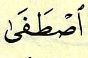 ٱصْطَفَىٰ